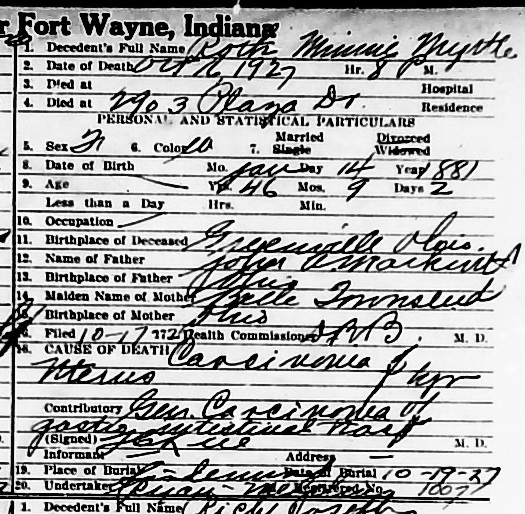 r Fort Wayne, Indiana
1. Decedent's Full Name Roth Minnie Myrtle
2. Date of Death Oct 16, 1927 Hr. 8 P M.
3. Died at Hospital
4. Died at 2903 Plaza Dr. Residence
PERSONAL AND STATISTICAL PARTICULARS
5. Sex F 6. Color W 7. Married Single Divorced Widowed
8. Date of Birth Mo. Jan Day 14 Year 1881
9. Age Yrs. 46 Mos. 9 Days 2
Less than a Day Hrs. Min.
10. Occupation
11. Birthplace of Deceased Greenville Ohio.
12. Name of Father John A.
13. Birthplace of Father Ohio
14. Maiden Name of Mother Belle Townsend
15. Birthplace of Mother Ohio
16. Filed 10-17 Health Commissioner M. D.
18. CAUSE OF DEATH Carcinoma of
Uterus
Contributory Gen. Carcinoma of
gastro intestinal tract
(Signed) M. D.
Informant Address
19. Place of Burial Date of Burial 10-19-27
20. Undertaker Registered No.
1. Decedent's Full Name Joseph